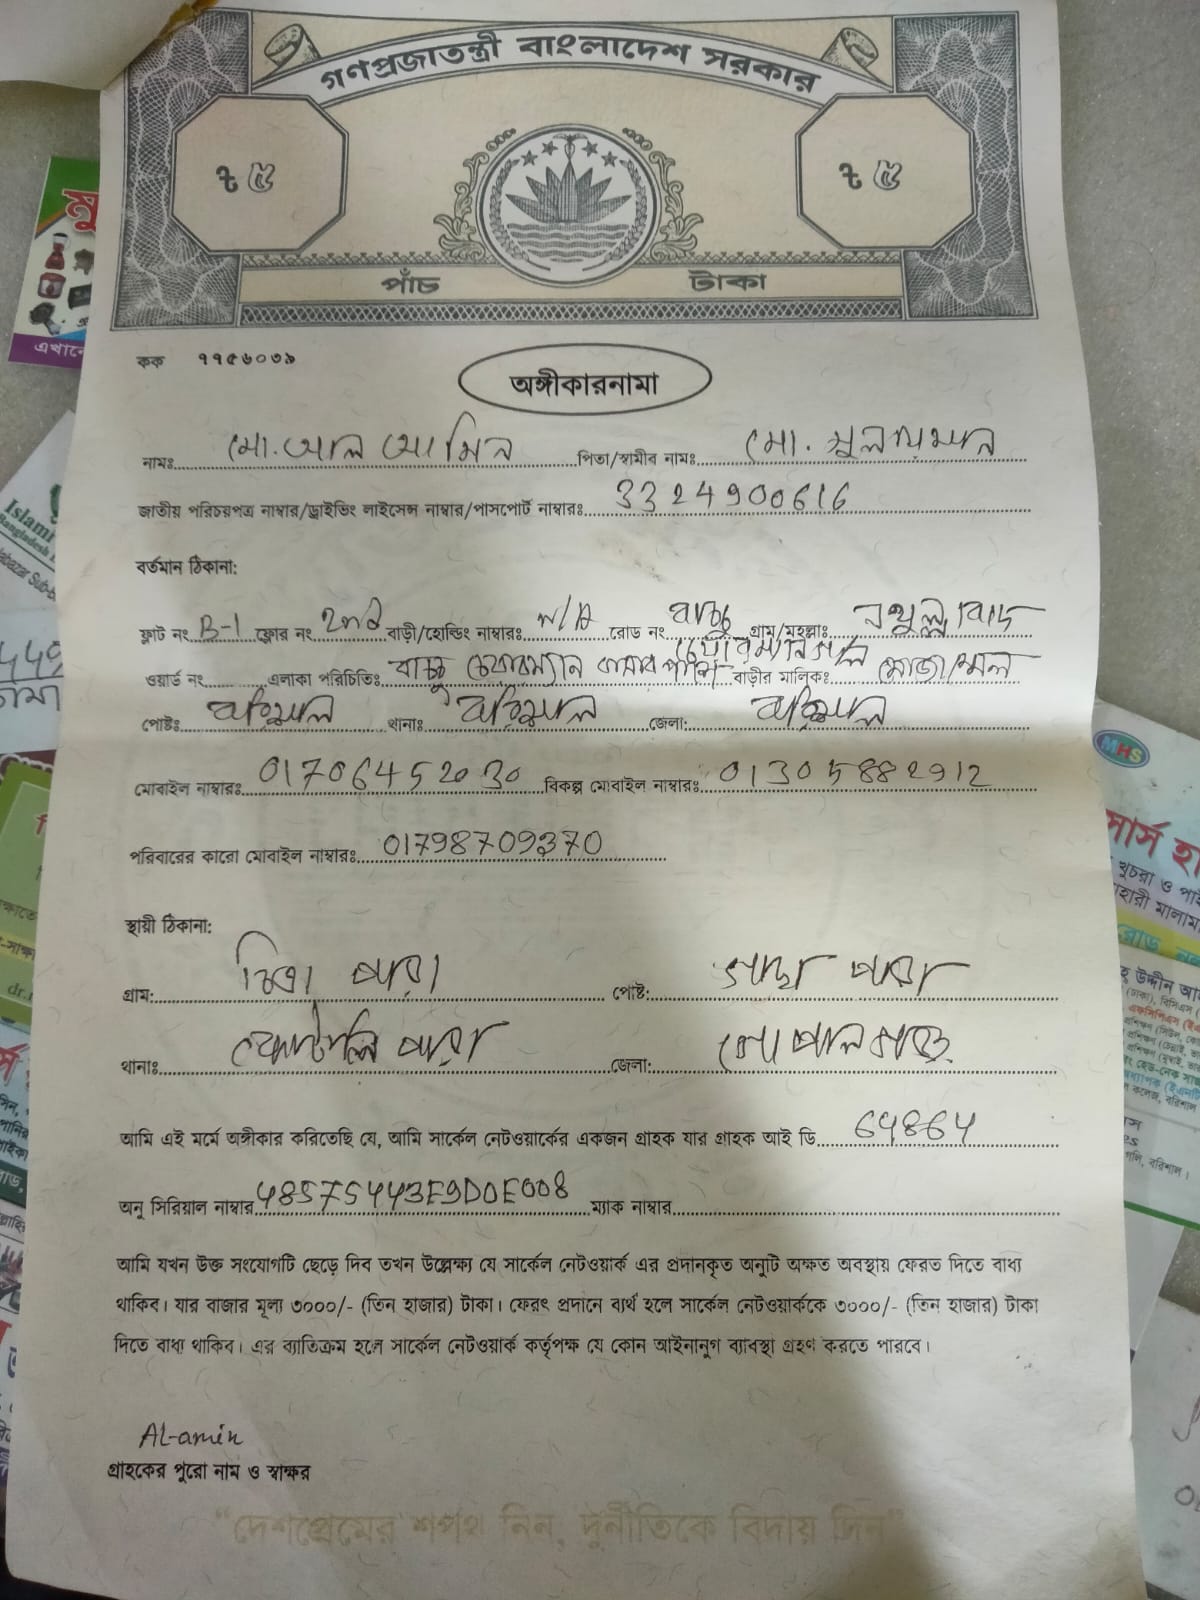 গণপ্রজাতন্ত্রী বাংলাদেশ সরকার
৳ ৫ ৳ ৫
পাঁচ টাকা
কক ৭৭৫৬০৩৯
অঙ্গীকারনামা
নামঃ মো. আল আমিন পিতা/স্বামীর নামঃ মো.
জাতীয় পরিচয়পত্র নাম্বার/ড্রাইভিং লাইসেন্স নাম্বার/পাসপোর্ট নাম্বারঃ 3324900616
বর্তমান ঠিকানা:
ফ্লাট নং B-1 ফ্লোর নং 2nd বাড়ী/হোল্ডিং নাম্বারঃ N/A রোড নং বাচ্চু গ্রাম/মহল্লাঃ
ওয়ার্ড নং এলাকা পরিচিতিঃ বাচ্চু চেয়ারম্যান বাড়ীর মালিকঃ মোজাম্মেল
পোষ্টঃ বরিশাল থানাঃ বরিশাল জেলা: বরিশাল
মোবাইল নাম্বারঃ 01706452030 বিকল্প মোবাইল নাম্বারঃ 01305882912
পরিবারের কারো মোবাইল নাম্বারঃ 01798709370
স্থায়ী ঠিকানা:
গ্রাম: পাড়া পোষ্ট: পাড়া
থানাঃ কোটালি পাড়া জেলা: গোপালগঞ্জ
আমি এই মর্মে অঙ্গীকার করিতেছি যে, আমি সার্কেল নেটওয়ার্কের একজন গ্রাহক যার গ্রাহক আই ডি 64864
অনু সিরিয়াল নাম্বার 48575443E9D0E008 ম্যাক নাম্বার
আমি যখন উক্ত সংযোগটি ছেড়ে দিব তখন উল্লেক্ষ্য যে সার্কেল নেটওয়ার্ক এর প্রদানকৃত অনুটি অক্ষত অবস্থায় ফেরত দিতে বাধ্য
থাকিব। যার বাজার মূল্য ৩০০০/- (তিন হাজার) টাকা। ফেরৎ প্রদানে ব্যর্থ হলে সার্কেল নেটওয়ার্ককে ৩০০০/- (তিন হাজার) টাকা
দিতে বাধ্য থাকিব। এর ব্যাতিক্রম হলে সার্কেল নেটওয়ার্ক কর্তৃপক্ষ যে কোন আইনানুগ ব্যাবস্থা গ্রহণ করতে পারবে।
AL-amin
গ্রাহকের পুরো নাম ও স্বাক্ষর
"দেশপ্রেমের শপথ নিন, দুর্নীতিকে বিদায় দিন"
MHS